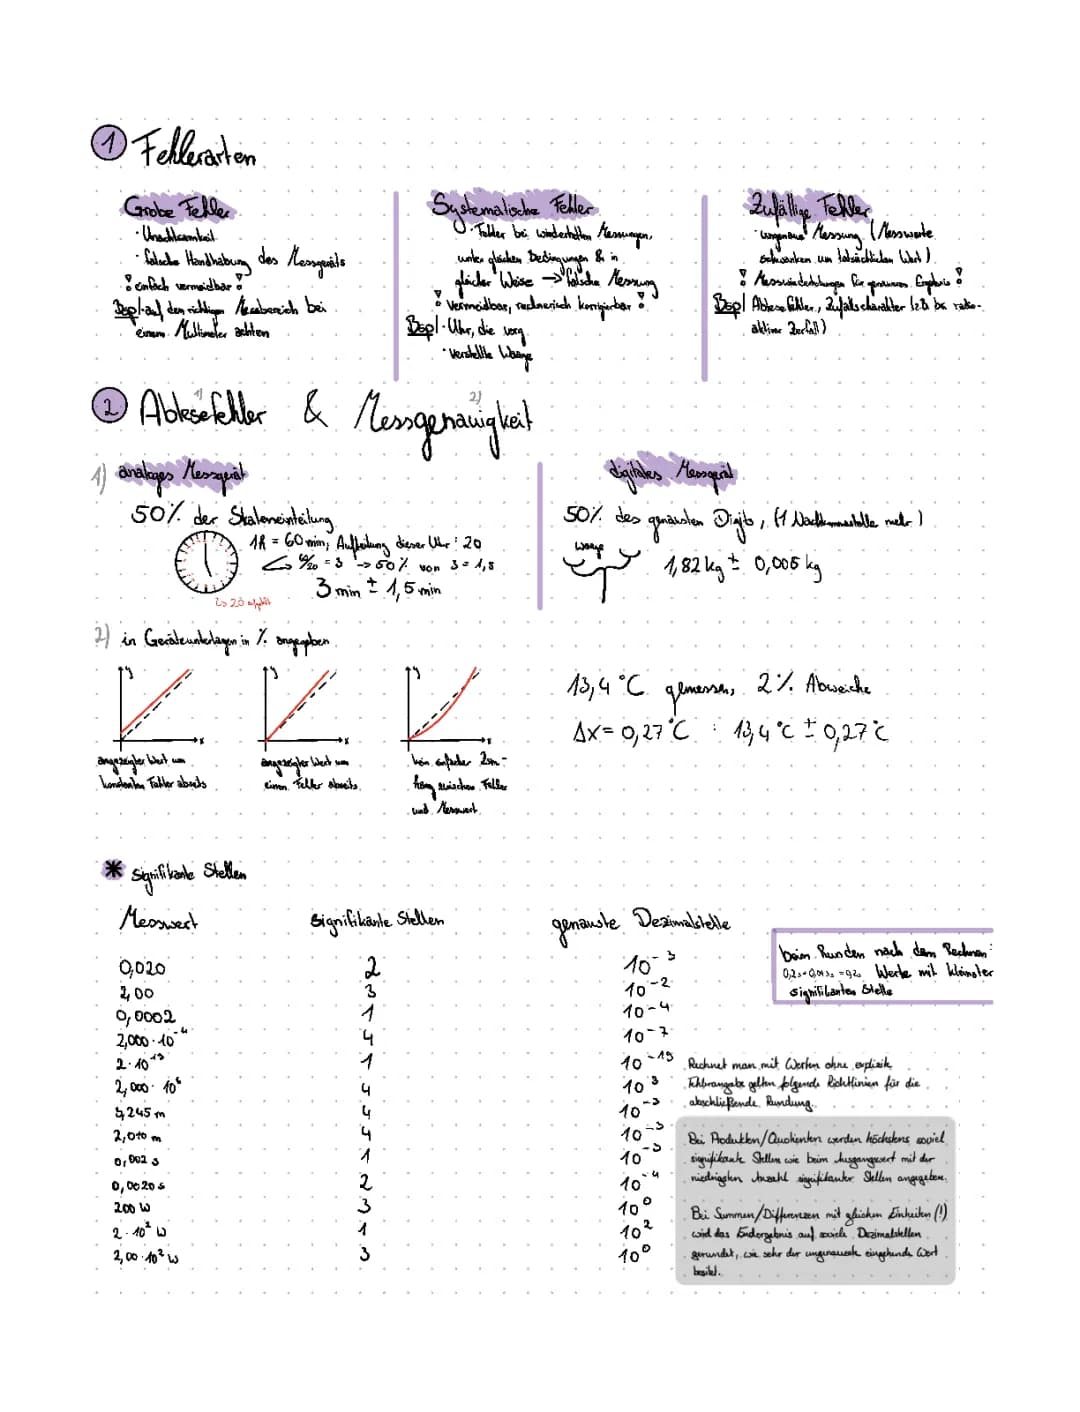 1 Fehlerarten
Grobe Fehler
· Unachtsamkeit
· falsche Handhabung des Messgeräts
! einfach vermeidbar !
Bsp/ · auf den richtigen Messbereich bei
einem Multimeter achten
Systematische Fehler
· Fehler bei wiederholten Messungen,
unter gleichen Bedingungen & in
gleicher Weise → falsche Messung
! vermeidbar, rechnerisch korrigierbar !
Bsp/ · Uhr, die vorg
· verstellte Waage
Zufällige Fehler
· ungenaue Messung (Messwerte
schwanken um tatsächlichen Wert)
! Messwiederholungen für genaueres Ergebnis !
Bsp/ Ablesefehler, Zufallscharakter (z.B. bei radio-
aktiver Zerfall)
2 Ablesefehler 1) & Messgenauigkeit 2)
1) analoges Messgerät
50% der Skaleneinteilung
1h = 60min, Aufteilung dieser Uhr: 20
60/20 = 3 → 50% von 3 = 1,5
3 min ± 1,5 min
↳ 20 aufgeteilt
digitales Messgerät
50% des genausten Digits, (1 Nachkommastelle mehr)
Waage
1,82 kg ± 0,005 kg
2) in Geräteunterlagen in % angegeben
y
x
y
x
y
x
angezeigter Wert um
konstanten Fehler abseits
angezeigter Wert um
einen Fehler abseits
kein einfacher Zsm-
hang zwischen Fehler
und Messwert
13,4 °C gemessen, 2% Abweiche
Δx = 0,27°C : 13,4°C ± 0,27°C
* Signifikante Stellen
Messwert signifikante Stellen genauste Dezimalstelle
0,020 2 10⁻³
2,00 3 10⁻²
0,0002 1 10⁻⁴
2,000·10⁻⁴ 4 10⁻⁷
2·10⁻¹⁹ 1 10⁻¹⁹
2,000·10⁶ 4 10³
5,245 m 4 10⁻³
2,010 m 4 10⁻³
0,002 s 1 10⁻³
0,0020 s 2 10⁻⁴
200 W 3 10⁰
2·10² W 1 10²
2,00·10² W 3 10⁰
beim Runden nach dem Rechnen:
Werte mit kleinster
signifikanten Stelle
Rechnet man mit Werten ohne explizite
Fehlerangabe gelten folgende Richtlinien für die
abschließende Rundung.
Bei Produkten/Quotienten werden höchstens soviel
signifikante Stellen wie beim Ausgangswert mit der
niedrigsten Anzahl signifikanter Stellen angegeben.
Bei Summen/Differenzen mit gleichen Einheiten (!)
wird das Endergebnis auf soviele Dezimalstellen
gerundet, wie sehr der ungenaueste eingehende Wert
besitzt.